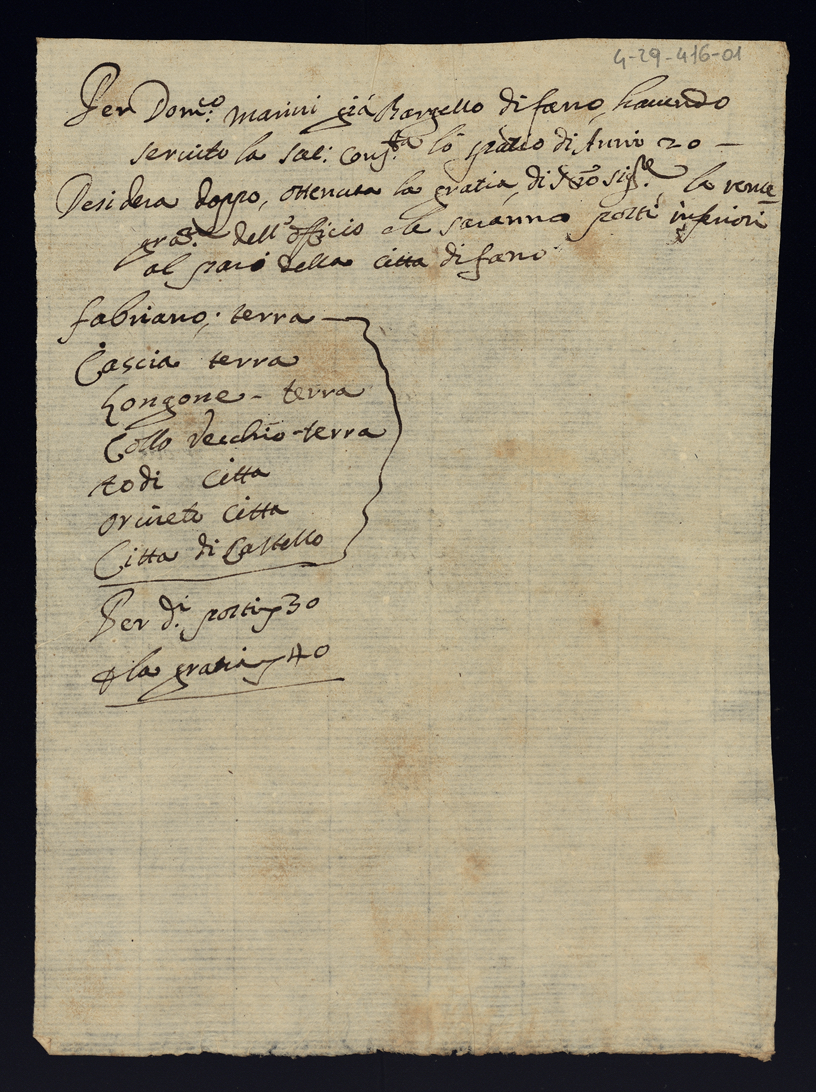 4-29-416-01
Per Dom.co Marini già Bargello di fano, havendo
servito la Sac: Cons.ta lo spatio di Anni 20 -
Desidera doppo, ottenuta la gratia, di N'ro Sig.re, la reinte
gra.ne dell'officio che saranno posti inferiori
al pari della citta di fano
fabriano: terra
Cascia terra
Longone - terra
Colle Vecchio - terra
todi citta
orvieto citta
Citta di Castello
Per d.i posti 30
la gratia 40